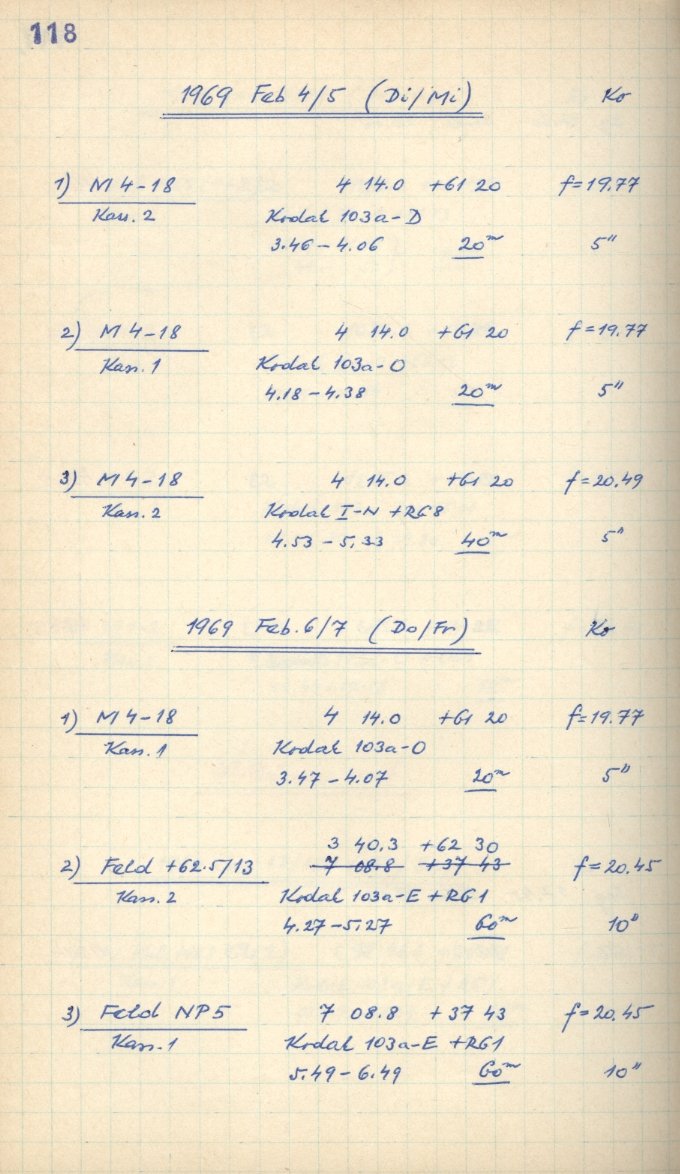 118
1969 Feb 4/5 (Di/Mi) Ko
1) M 4-18 4 14.0 +61 20 f=19.77
Kass. 2 Kodak 103a-D
3.46-4.06 20m 5"
2) M 4-18 4 14.0 +61 20 f=19.77
Kass. 1 Kodak 103a-O
4.18-4.38 20m 5"
3) M 4-18 4 14.0 +61 20 f=20.49
Kass. 2 Kodak I-N +RG8
4.53-5.33 40m 5"
1969 Feb. 6/7 (Do/Fr) Ko
1) M 4-18 4 14.0 +61 20 f=19.77
Kass. 1 Kodak 103a-O
3.47-4.07 20m 5"
3 40.3 +62 30
2) Feld +62.5/13 7 08.8 +37 43 f=20.45
Kass. 2 Kodak 103a-E +RG1
4.27-5.27 60m 10"
3) Feld NP5 7 08.8 +37 43 f=20.45
Kass. 1 Kodak 103a-E +RG1
5.49-6.49 60m 10"